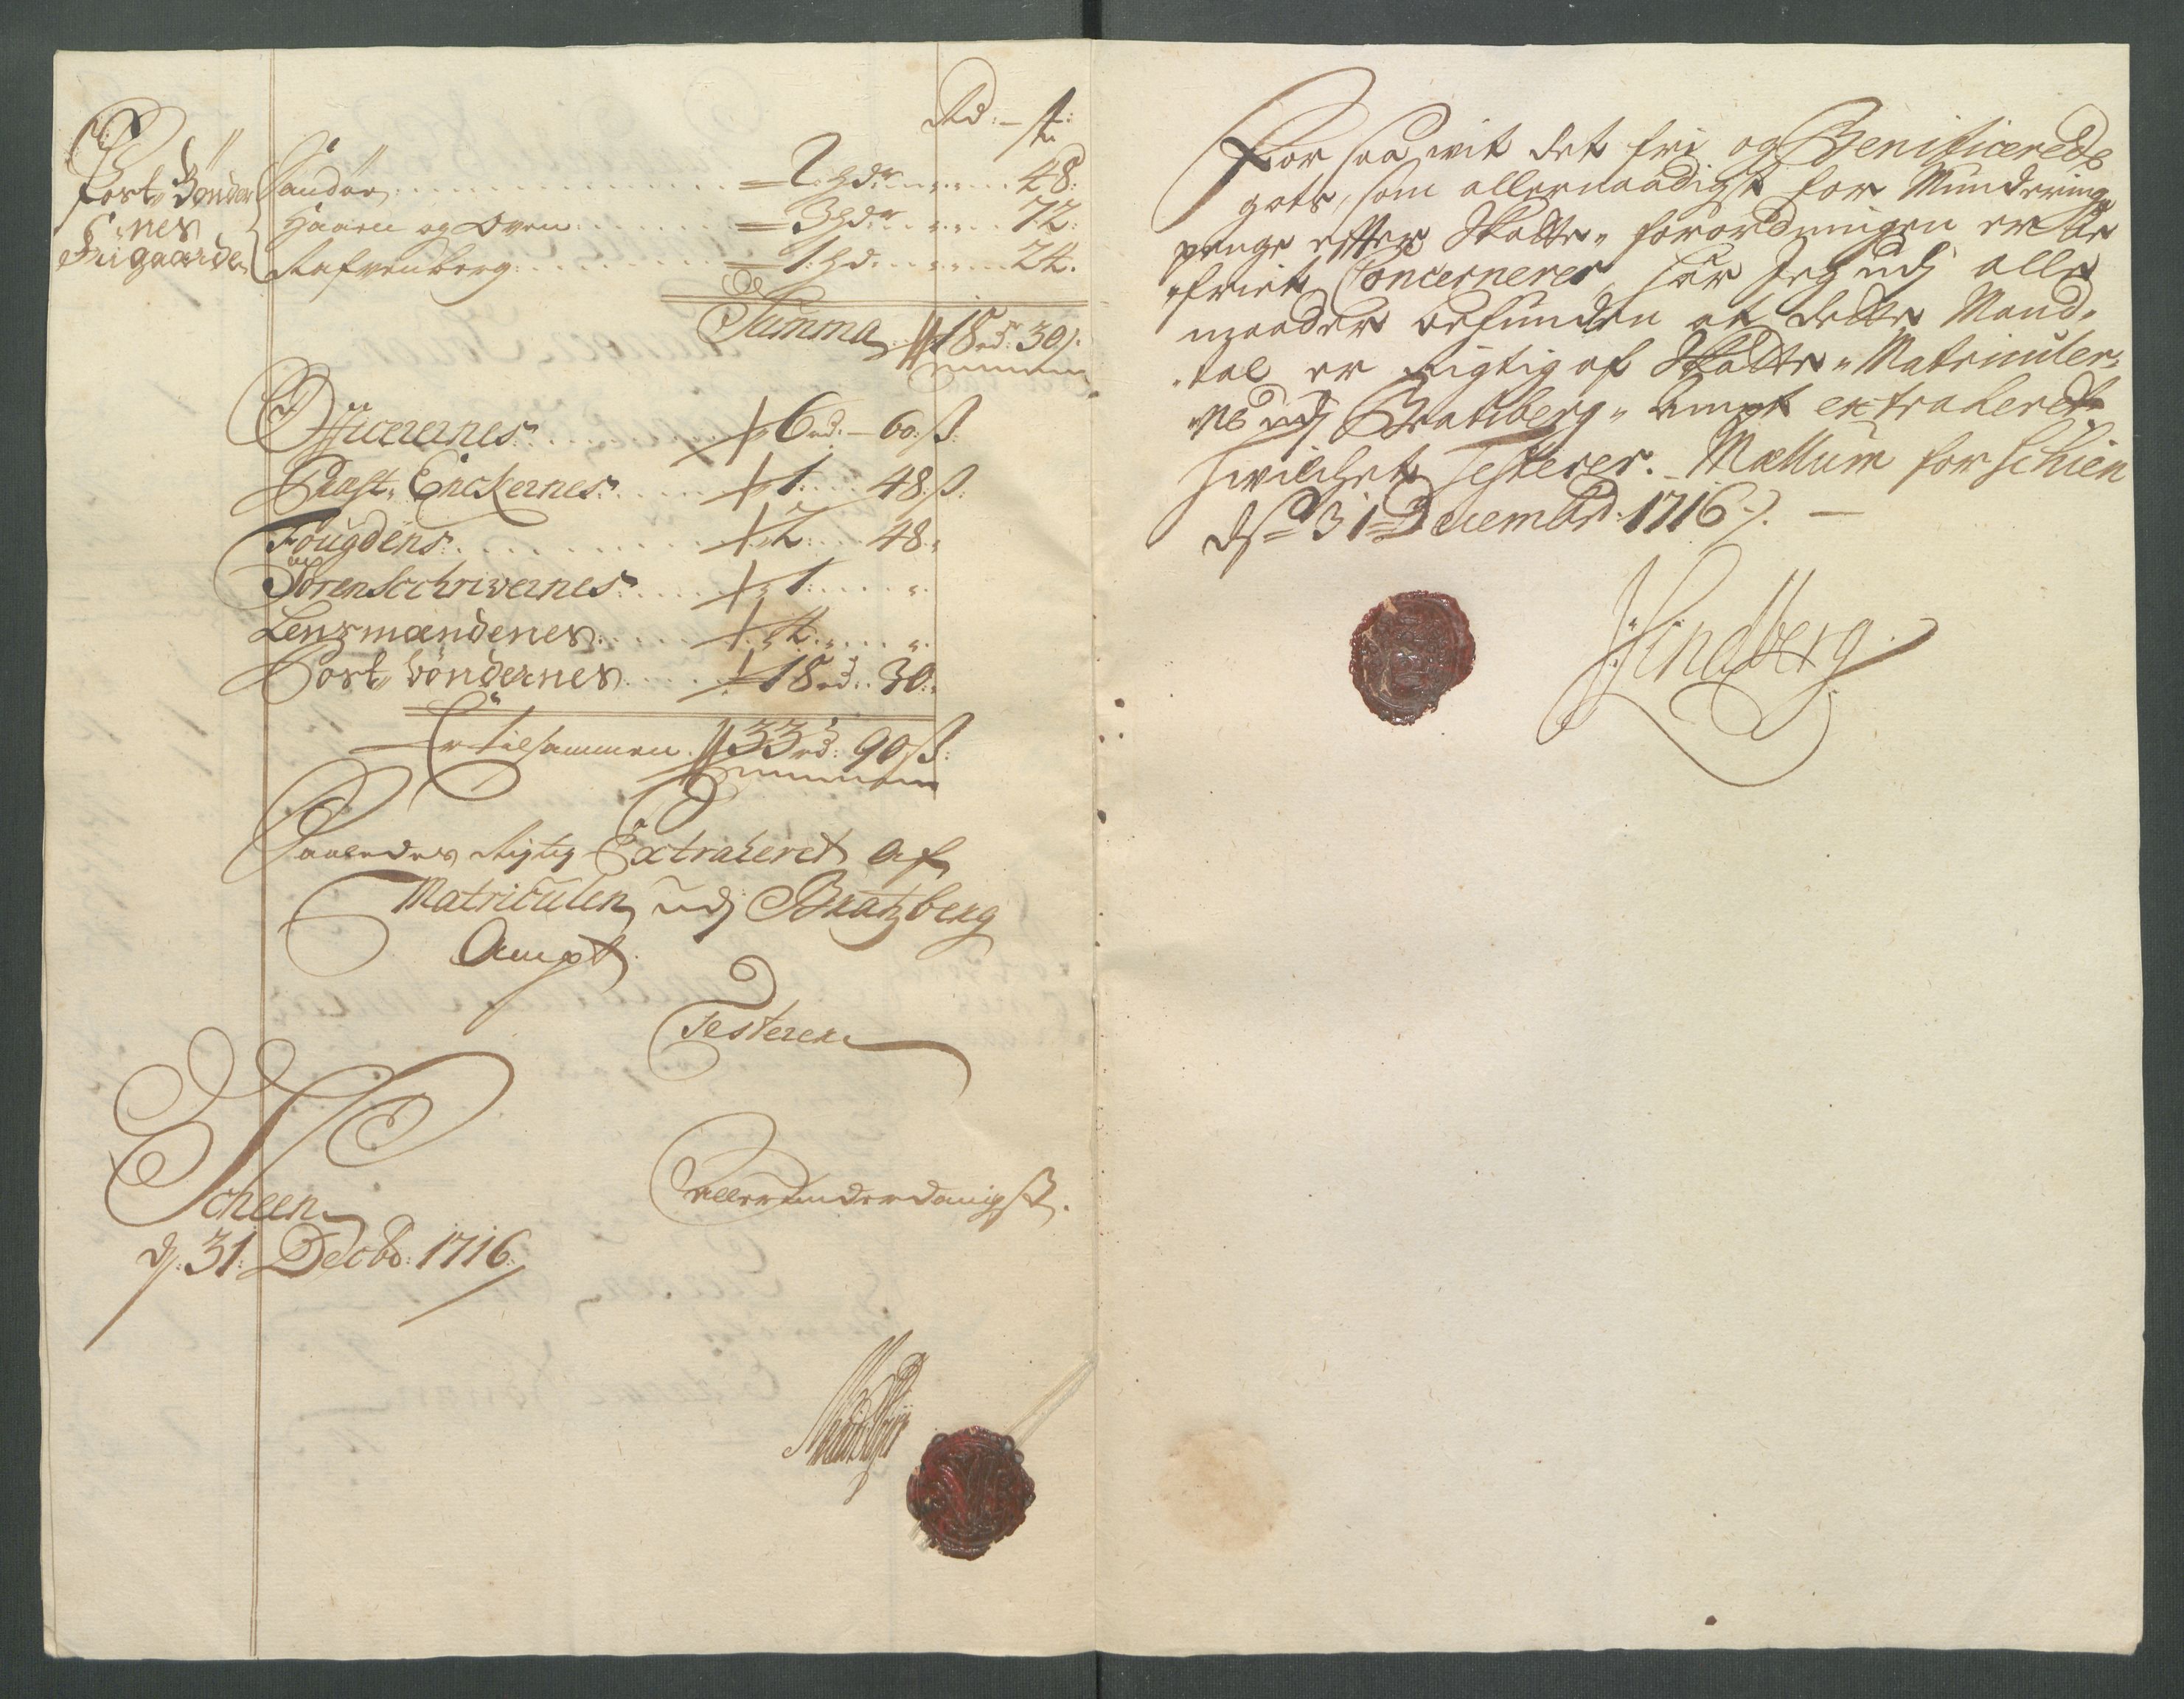 Rd: - ß:
Post Bønder
nes
Frigaarder
Sandøe . . . 2 hdr . . . 48:
Haaen ogOven . . . 3 hdr . . . 72:
Rafvenberg . . . 1 hd . . . 24.
Summa 18 rd: 30 ß.
Officerernes . . . 6 rd. - 60: ß:
Præst, Enckernes . . . 1 . . . 48: ß:
Fougdens . . . 2 . . . 48:
Sorenschriwernes . . . 1 . . . "
Lensmændenes . . . 4 . . . "
Post bøndernes . . . 18 rd. 30:
Er tilsammen 33 rd: 90 ß:
Saaledes Rigtig Extraheret af
Matriculen udj Bratzberg
Ampt.
Testerer
Scheen
d: 31: Decbr: 1716:
allerunderdanigst.
For saa wit det fri og Benificerede
gots, som allernaadigst for Munderings
penge efter Skatte-forordningen er be
friet Concernerer, har Jeg udj alle
maader befunden at dette Mand-
tal er rigtig af Skatte-Matriculer-
ne udj Bratsberg-Ampt extraheret
hwilchet Testerer. Mællum for Schien
dn 31 Decembr: 1716.